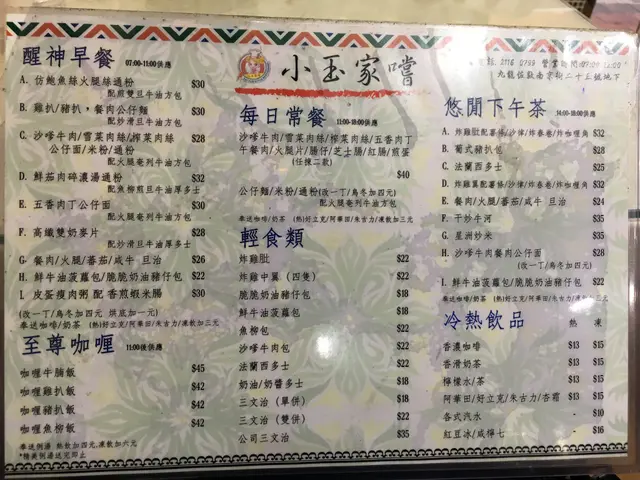 小玉家嚐
2116 0799 營業時間:07:00
九龍佐敦南京街二十五號地下
醒神早餐 07:00-11:00供應
A. 仿鮑魚絲火腿絲通粉 $30
配煎雙旦牛油方包
B. 雞扒/豬扒,餐肉公仔麵 $30
配炒滑旦牛油方包
C. 沙嗲牛肉/雪菜肉絲/榨菜肉絲 $28
公仔面/米粉/通粉
配火腿奄列牛油方包
D. 鮮茄肉碎濃湯通粉 $32
配魚柳煎旦牛油厚多士
E. 五香肉丁公仔面 $30
配火腿奄列牛油方包
F. 高纖雙奶麥片 $28
配炒滑旦牛油厚多士
G. 餐肉/火腿/番茄/咸牛 旦治 $26
H. 鮮牛油菠蘿包/脆脆奶油豬仔包 $22
I. 皮蛋瘦肉粥 配 香煎蝦米腸 $30
(改一丁/烏冬加四元 烘底加一元)
奉送咖啡/奶茶 (熱)好立克/阿華田/朱古力/凍飲加三元
至尊咖喱 11:00後供應
咖喱牛腩飯 $45
咖喱雞扒飯 $42
咖喱豬扒飯 $42
咖喱魚柳飯 $42
奉送例湯 熱飲加四元,凍飲加六元
*精美例湯送完即止
每日常餐 11:00-18:00供應
沙嗲牛肉/雪菜肉絲/榨菜肉絲/五香肉丁
午餐肉/火腿片/腸仔/芝士腸/紅腸/煎蛋
(任揀二款)
$40
公仔麵/米粉/通粉(改一丁/烏冬加四元)
配火腿奄列牛油方包
奉送咖啡/奶茶 (熱)好立克/阿華田/朱古力/凍飲加三元
輕食類
炸雞肶 $22
炸雞中翼(四隻) $22
脆脆奶油豬仔包 $18
鮮牛油菠蘿包 $18
魚柳包 $22
沙嗲牛肉包 $22
法蘭西多士 $22
奶油/奶醬多士 $18
三文治(單併) $18
三文治(雙併) $22
公司三文治 $35
悠閒下午茶 14:00-18:00供應
A. 炸雞肶配薯條/沙律/炸春卷/炸咖喱角 $32
B. 葡式豬扒包 $28
C. 法蘭西多士 $25
D. 炸雞翼配薯條/沙律/炸春卷/炸咖喱角 $32
E. 餐肉/火腿/番茄/咸牛 旦治 $24
F. 干炒牛河 $35
G. 星洲炒米 $35
H. 沙嗲牛肉餐肉公仔面 $28
(改一丁/烏冬加四元)
I. 鮮牛油菠蘿包/脆脆奶油豬仔包 $22
奉送咖啡/奶茶 (熱)好立克/阿華田/朱古力/凍飲加三元
冷熱飲品 熱 凍
香濃咖啡 $13 $15
香滑奶茶 $13 $15
檸檬水/茶 $13 $15
阿華田/好立克/朱古力/杏霜 $13 $15
各式汽水 - $10
紅豆冰/咸檸七 - $16